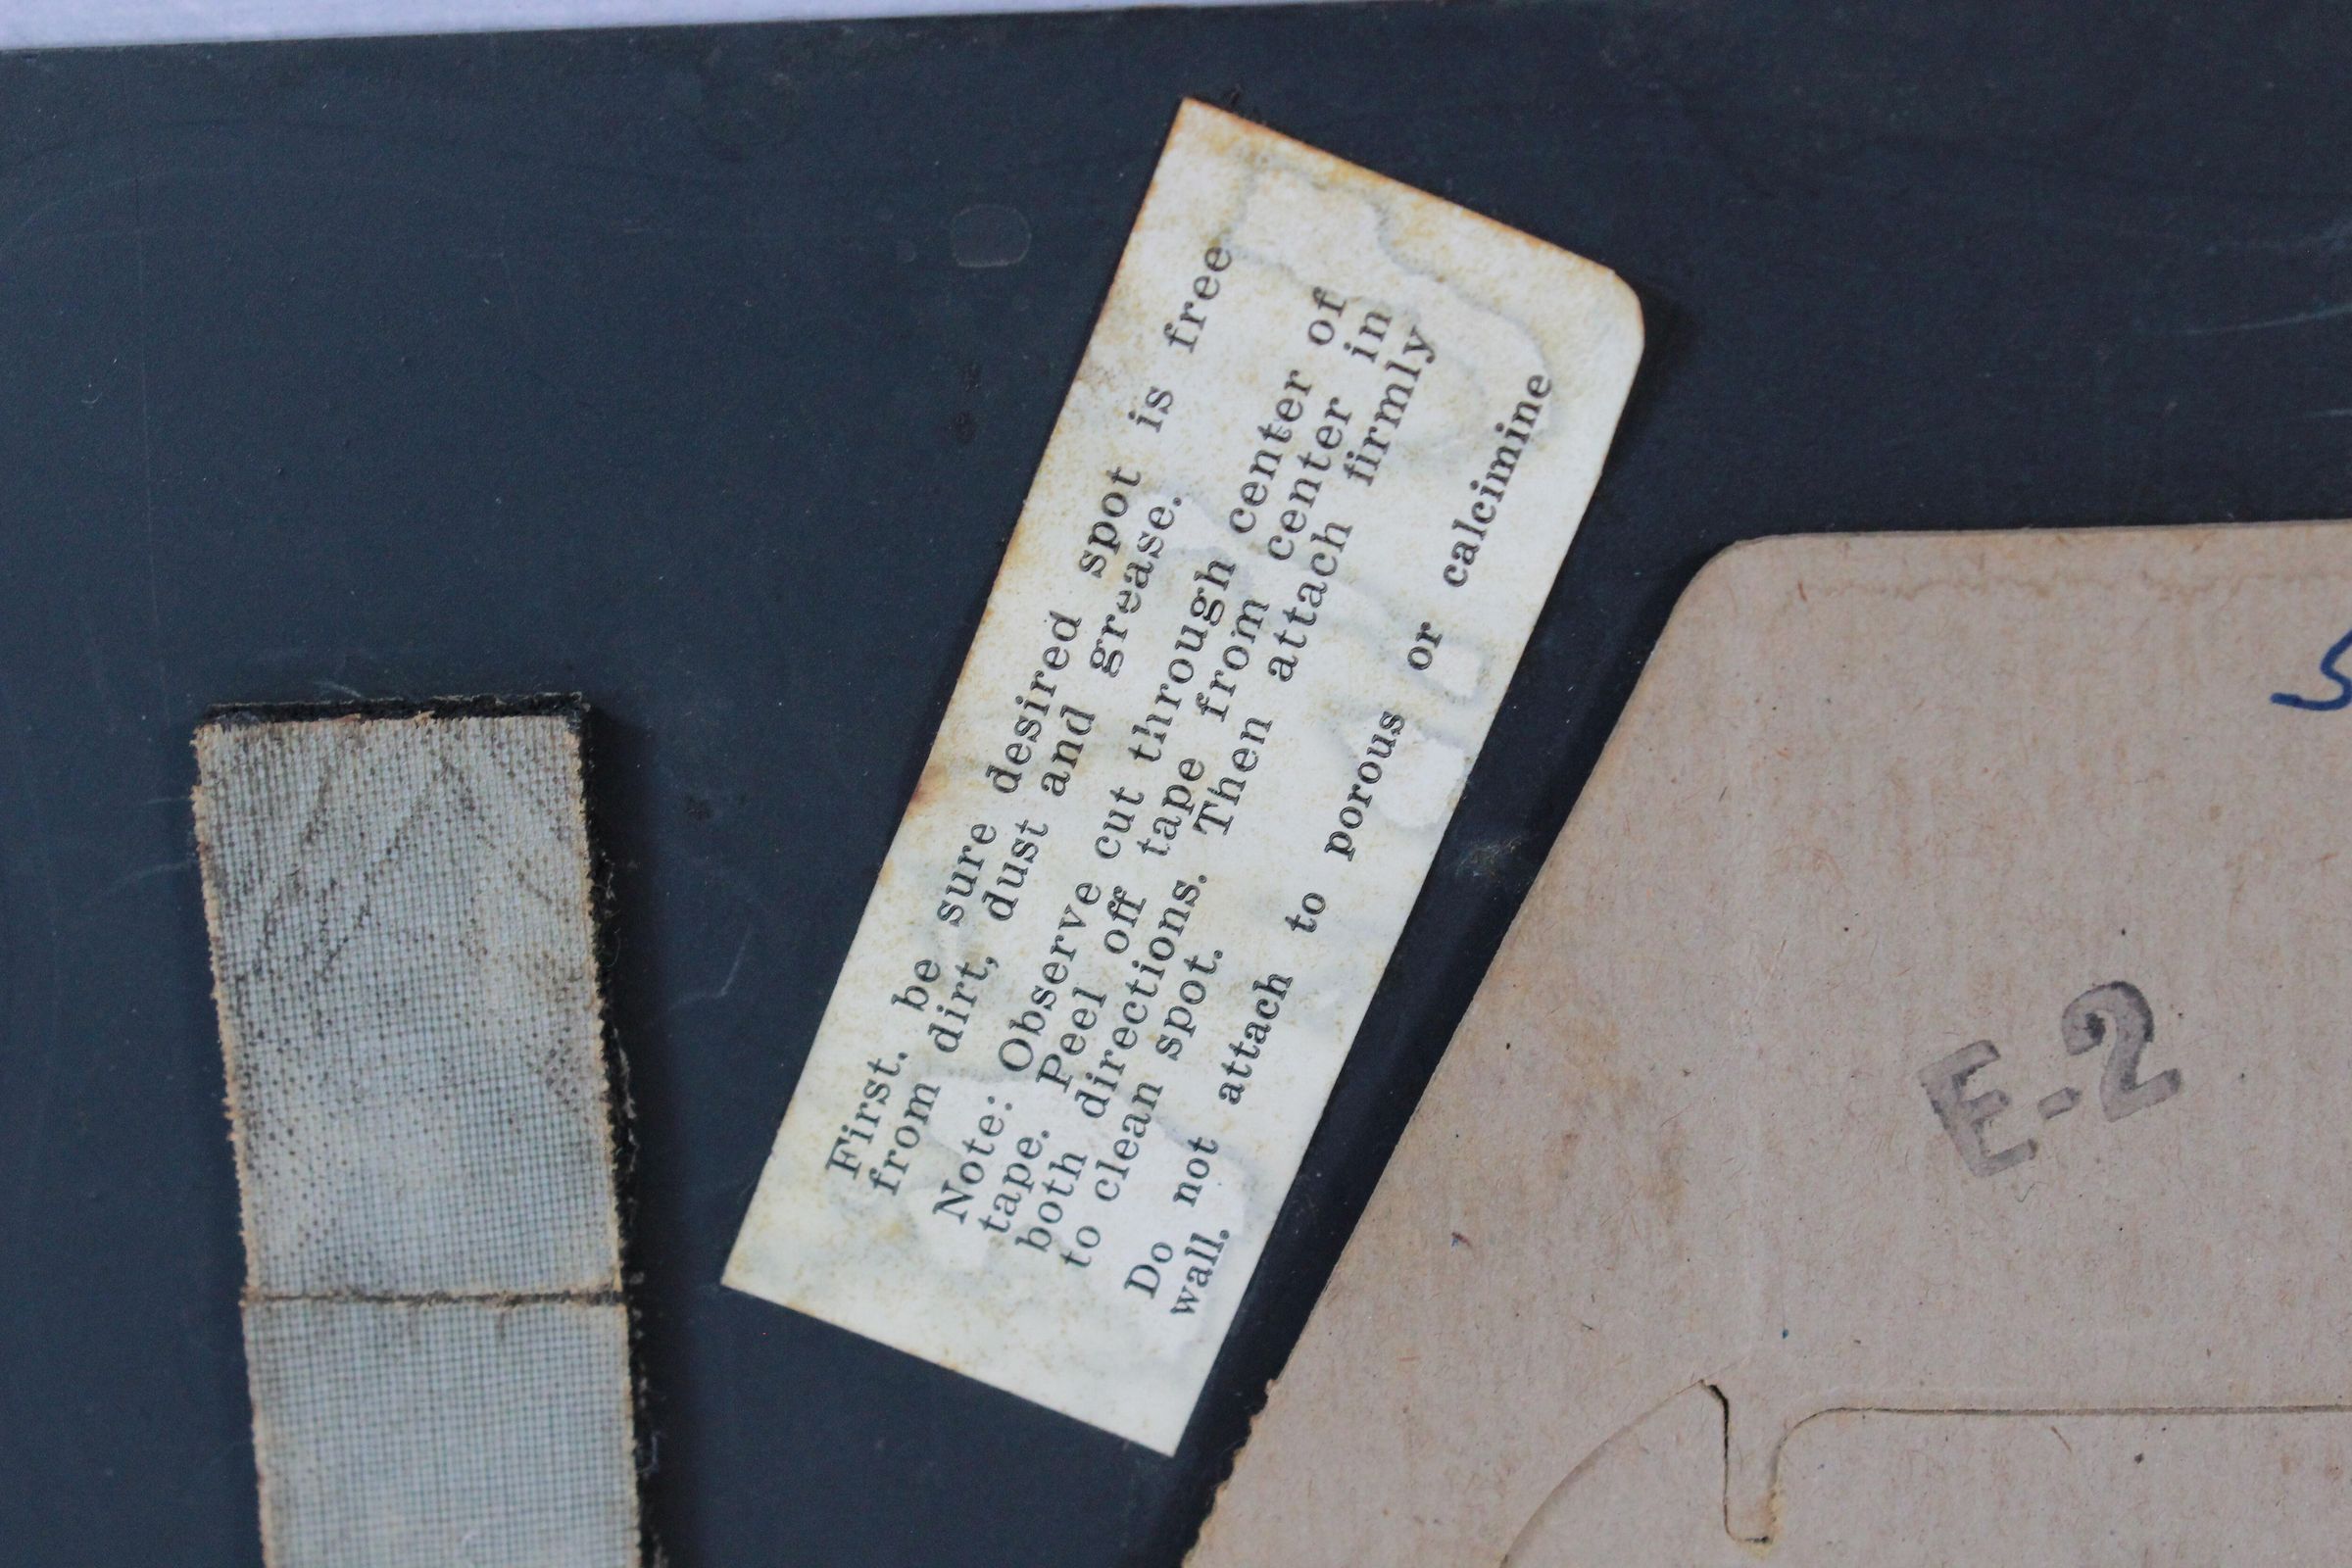 First. be sure desired spot is free
from dirt, dust and grease.
Note: Observe cut through center of
tape. Peel off tape from center in
both directions. Then attach firmly
to clean spot.
Do not attach to porous or calcimine
wall.
E-2